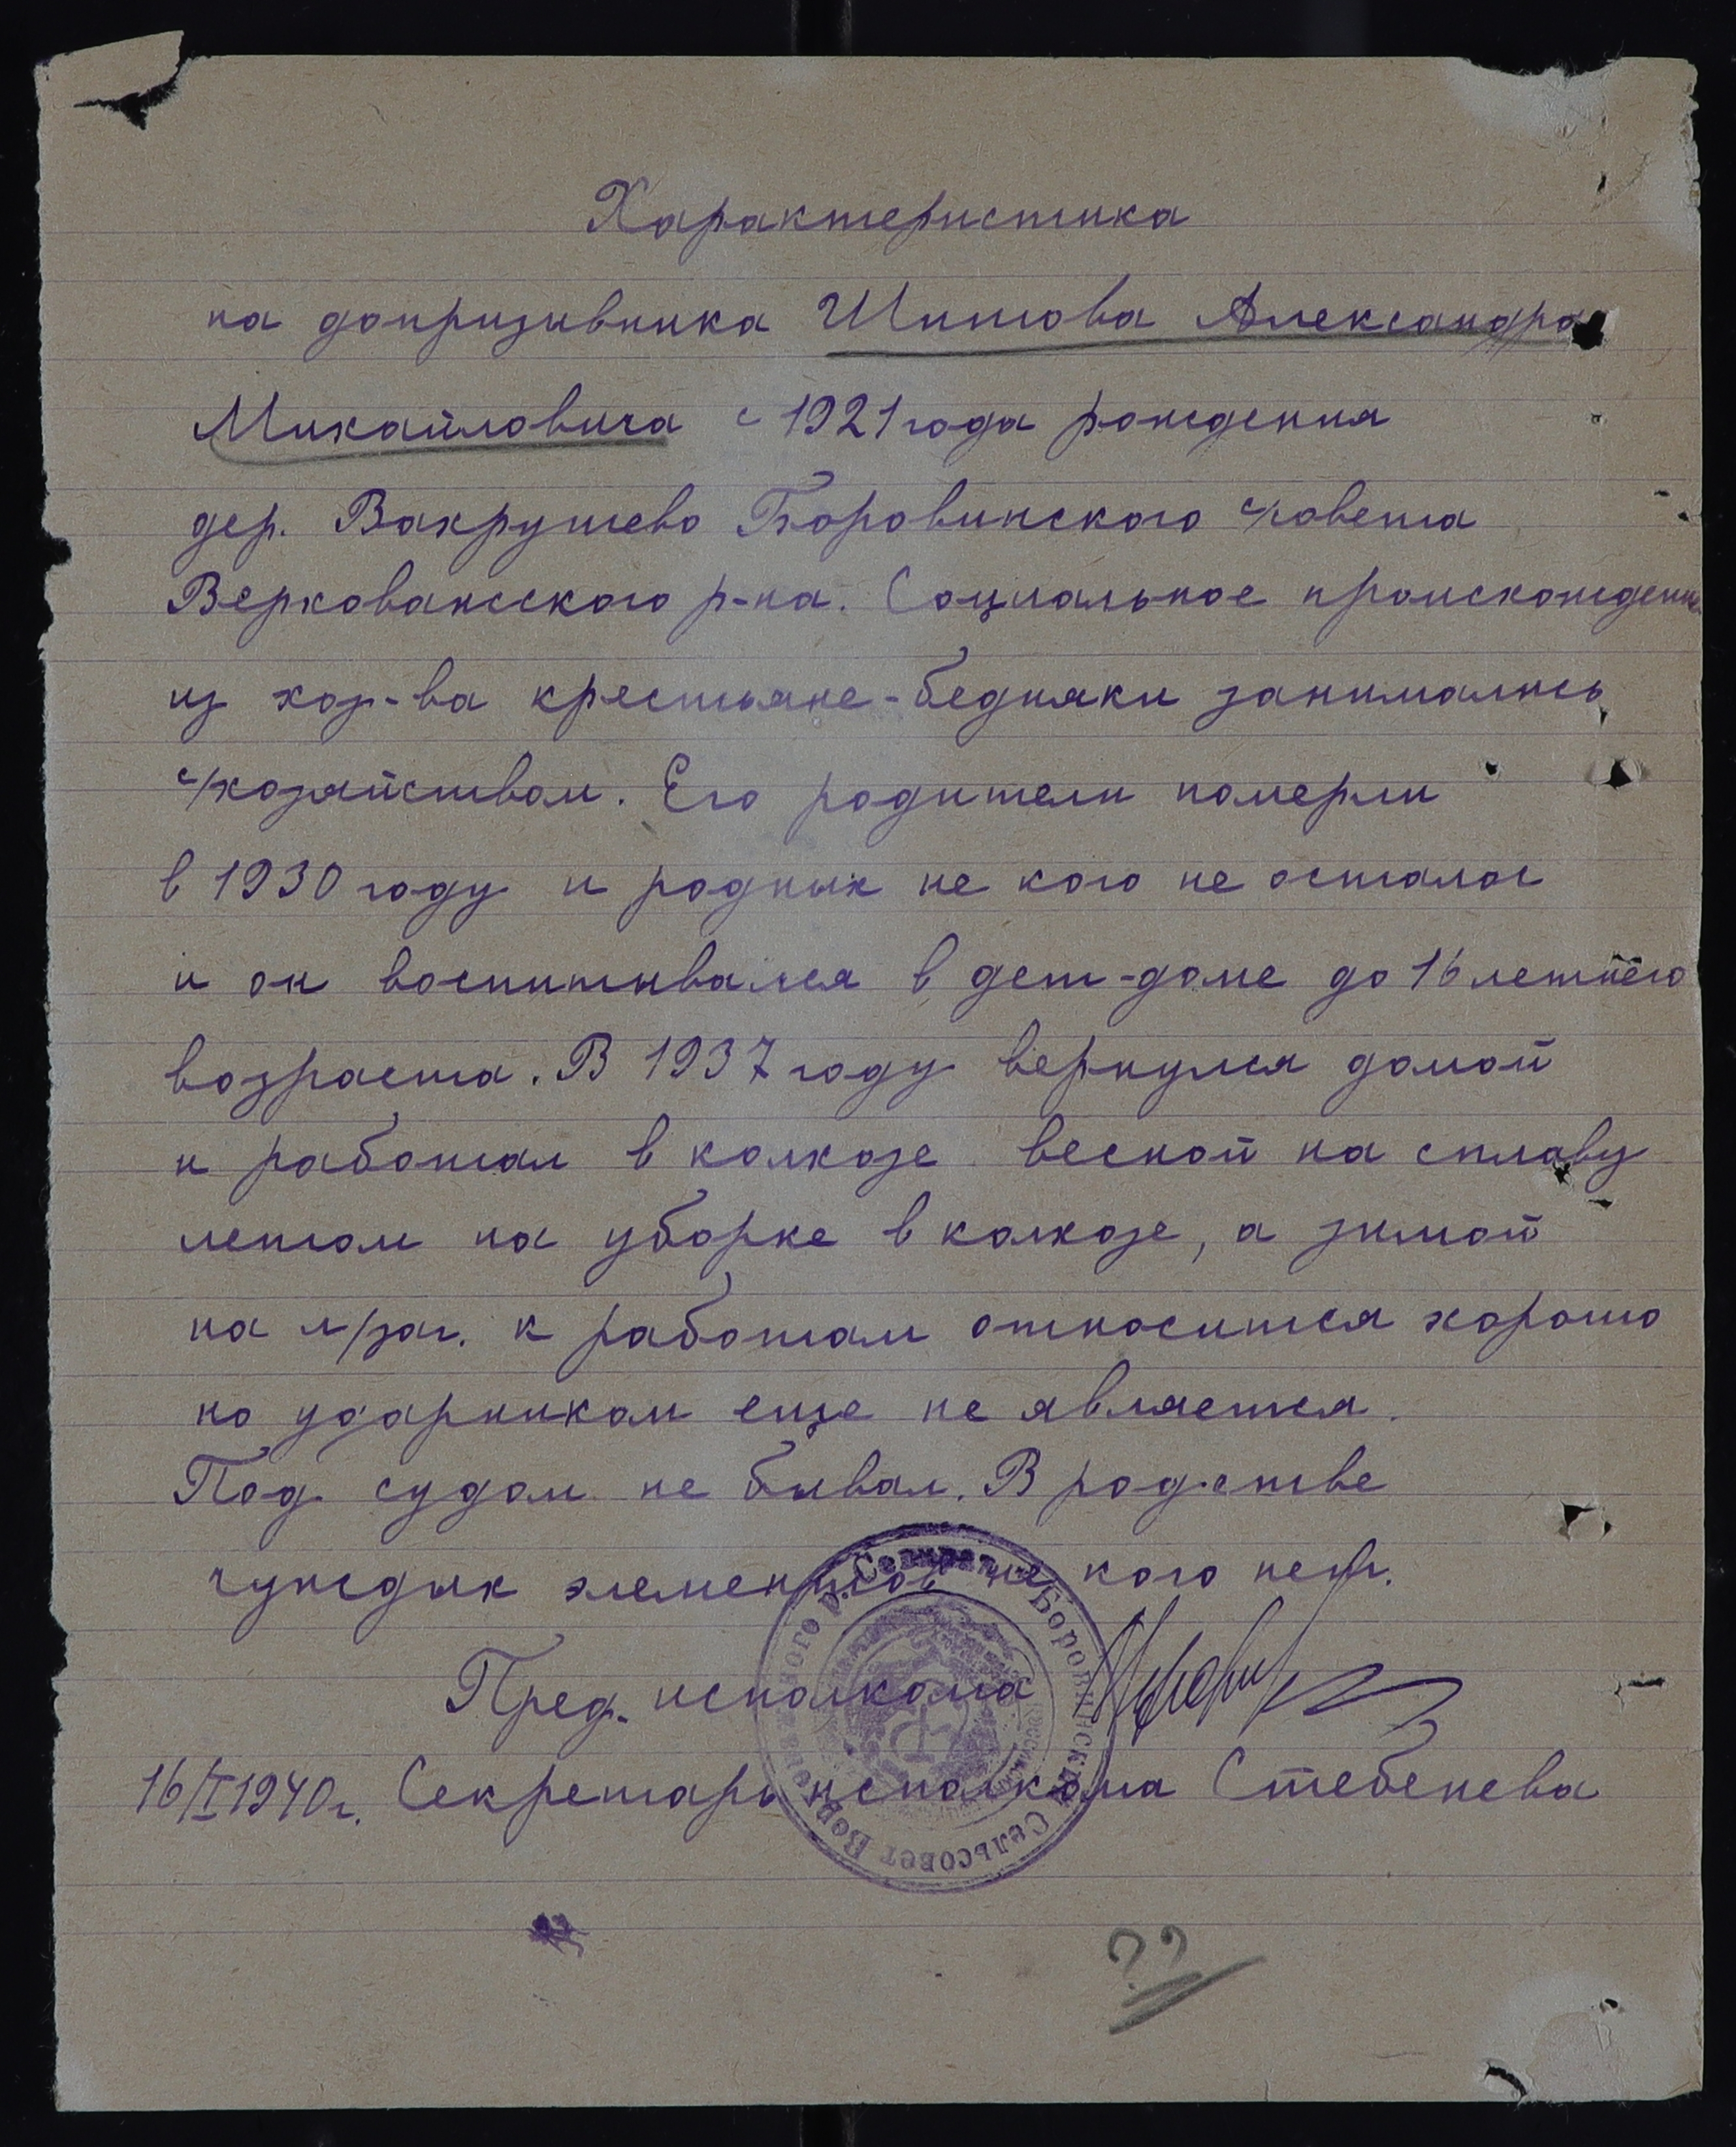 Характеристика
на допризывника Шитова Александра
Михайловича с 1921 года рождения
дер. Вахрушево Боровинского с/совета
Верховажсского р-на. Социальное происхождение
из хоз-ва крестьяне-бедняки занимались
с/хозяйством. Его родители померли
в 1930 году и родных не кого не осталос
и он воспитывался в дет-доме до 16 летнего
возраста. В 1937 году вернулся домой
и работал в колхозе весной на сплаву
летом на уборке в колхозе, а зимой
на л/заг. к работам относится хорошо
но ударником еще не является.
Под судом не бывал. В родстве
чуждых элементов не кого нет.
Пред. исполкома
16/I 1940 г. Секретарь исполкома Стебенева
Боровинский Сельсовет
??